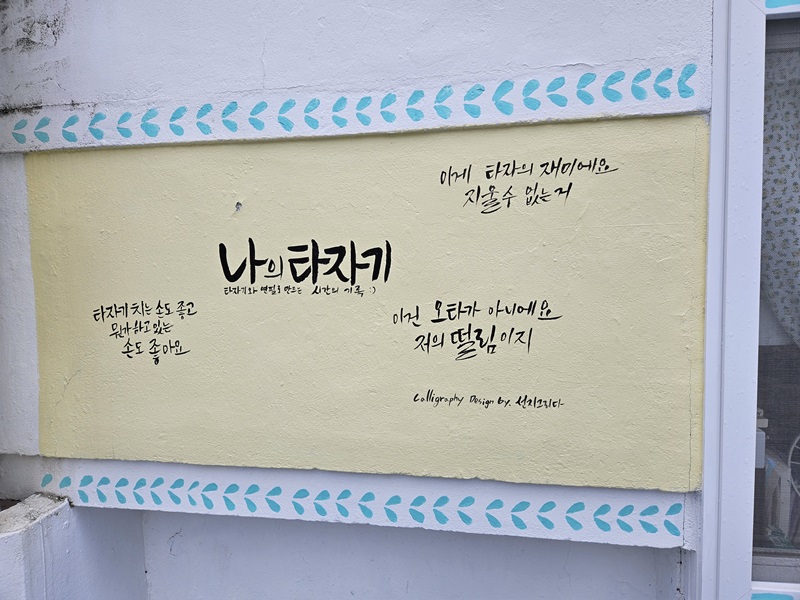 이게 타자의 재미에요
지울 수 없는거
나의 타자기
타자기와 연필로 만드는 시간의 기록 :)
타자기 치는 손도 좋고
뭔가 하고 있는
손도 좋아요
이건 오타가 아니에요
저의 떨림이지
Calligraphy Design by. 선지크리다